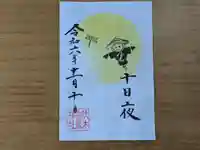 十日夜
令和六年十一月十日